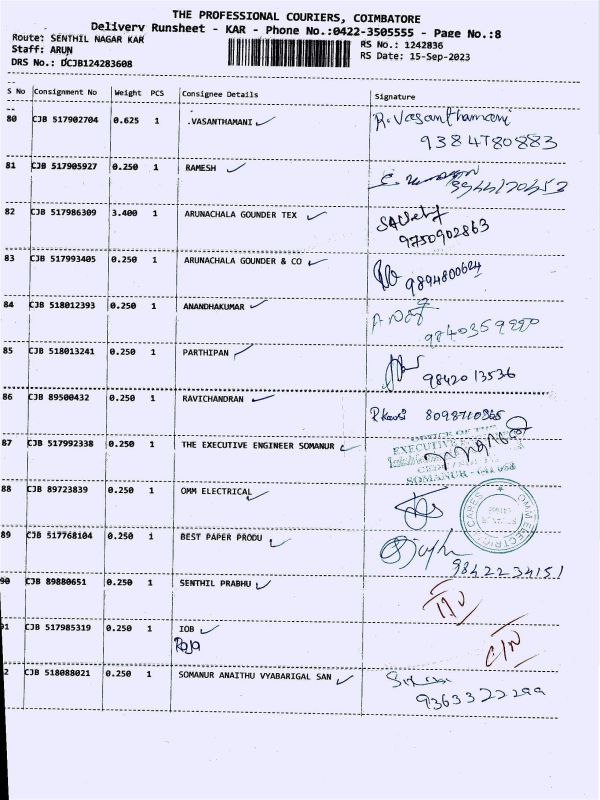 THE PROFESSIONAL COURIERS, COIMBATORE
Delivery Runsheet - KAR - Phone No.:0422-3505555 - Page No.:8
Route: SENTHIL NAGAR KAR
RS No.: 1242836
Staff: ARUN
RS Date: 15-Sep-2023
DRS No.: DCJB124283608
S No Consignment No Weight PCS Consignee Details Signature
80 CJB 517902704 0.625 1 .VASANTHAMANI R.Vasanthamani
9384780883
81 CJB 517905927 0.250 1 RAMESH
82 CJB 517986309 3.400 1 ARUNACHALA GOUNDER TEX
9750902863
83 CJB 517993405 0.250 1 ARUNACHALA GOUNDER & CO
9894800624
84 CJB 518012393 0.250 1 ANANDHAKUMAR
85 CJB 518013241 0.250 1 PARTHIPAN
9842013536
86 CJB 89500432 0.250 1 RAVICHANDRAN
87 CJB 517992338 0.250 1 THE EXECUTIVE ENGINEER SOMANUR
OFFICE OF THE
EXECUTIVE
SOMANUR - 641 668
88 CJB 89723839 0.250 1 OMM ELECTRICAL
OMM ELECTRICAL CARES
89 CJB 517768104 0.250 1 BEST PAPER PRODU
9842234151
90 CJB 89880651 0.250 1 SENTHIL PRABHU
91 CJB 517985319 0.250 1 IOB
Raja
C/N
2 CJB 518088021 0.250 1 SOMANUR ANAITHU VYABARIGAL SAN